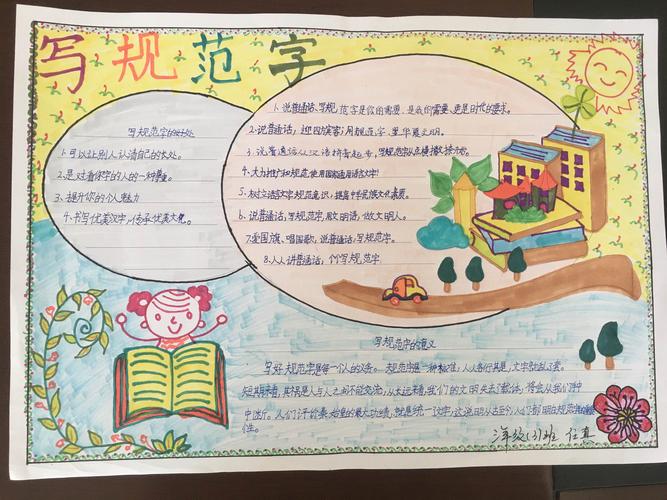 写规范字
写规范字的好处
1.可以让别人认清自己的长处。
2.是对看你字的人的一种尊重。
3、提升你的个人魅力
4.书写优美汉字,传承优美文化。
1、说普通话、写规范字是你的需要、是我的需要、更是时代的要求。
2.说普通话,迎四方宾客;用规范字,里华夏文明。
3、说普通话从汉语拼音起步,写规范字从点横撇捺开始。
4.大力推广和规范使用国家通用语言文字!
5.树立语言文字规范意识,提高中华民族文化素质。
6.说普通话,写规范字,献文明语,做文明人。
7.爱国旗、唱国歌,说普通话,写规范字。
8.人人讲普通话,们写规范字.
写规范字的意义
写好规范字是每个人的义务。规范字是一种标准,人人各行其是,文字就乱了套。
短期来看,其将是人与人之间不能交流,从长远来看,我们的文明失去了载体,将会从我们
中断。人们评价秦始皇的最大功绩,就是统一汉字,这说明从古至今人们都明白规范字的
性。
三年级(3)班 任真